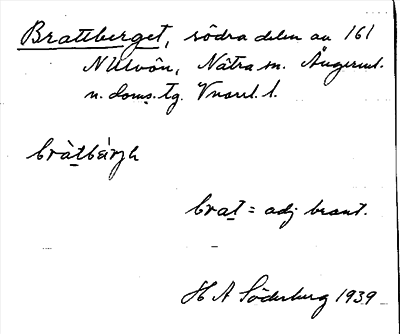 Brattberget, södra delen av 161
N Ulvön, Nätra sn. Ångerml.
n. doms. tg. Vnorrl. l.
bràtbærjh
brat = adj brant.
H A Söderberg 1939